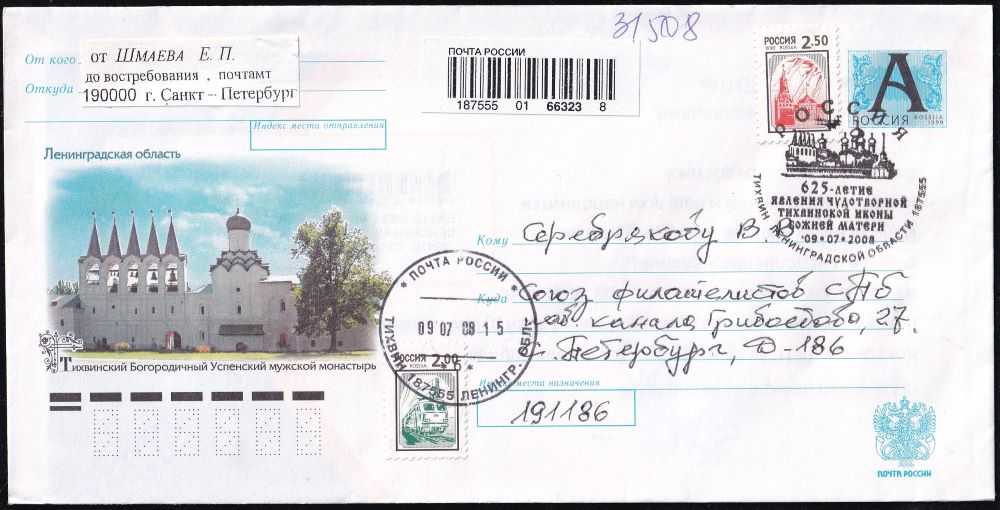 31508
От кого
от Шмаева Е. П.
до востребования, почтамт
Откуда
190000 г. Санкт-Петербург
Индекс места отправления
ПОЧТА РОССИИ
187555 01 66323 8
РОССИЯ 2.50
1998 ROSSIJA
А
РОССИЯ
ROSSIJA
1999
РОССИЯ
625-ЛЕТИЕ
ЯВЛЕНИЯ ЧУДОТВОРНОЙ
ТИХВИНСКОЙ ИКОНЫ
БОЖИЕЙ МАТЕРИ
09•07•2008
ТИХВИН ЛЕНИНГРАДСКОЙ ОБЛАСТИ 187555
Ленинградская область
Тихвинский Богородичный Успенский мужской монастырь
Кому
Серебрякову В. В.
Куда
Союз филателистов СПб
наб. канала Грибоедова, 27.
г. Петербург, Д-186
Индекс места назначения
191186
* ПОЧТА РОССИИ *
09 07 08 15
ТИХВИН 187555 ЛЕНИНГР. ОБЛ.
*б*
РОССИЯ 2.00
ROSSIJA
ПОЧТА РОССИИ